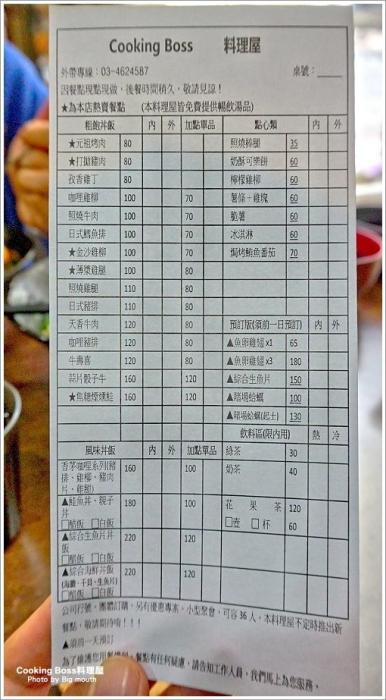 Cooking Boss 料理屋
外帶專線：03-4624587 桌號：
因餐點現點現做，後餐時間稍久，敬請見諒！
★為本店熱賣餐點 (本料理屋皆免費提供暢飲湯品)
粗飽丼飯 內 外 加點單品 點心類 內 外
★元祖烤肉 80 照燒棒腿 35
★打拋豬肉 80 奶酥可樂餅 60
孜香雞丁 80 檸檬雞柳 60
咖哩雞柳 100 70 薯條+雞塊 60
照燒牛肉 100 70 脆薯 60
日式鱈魚排 100 70 冰淇淋 60
★金沙雞柳 100 70 焗烤鮪魚番茄 70
★薄漿雞腿 100 80
照燒雞腿 110 80
日式豬排 110 80
天香牛肉 120 80 預訂版(須前一日預訂) 內 外
咖哩豬排 120 80 ▲魚卵雞翅x1 65
牛壽喜 120 80 ▲魚卵雞翅x3 180
蒜片骰子牛 160 120 ▲綜合生魚片 150
★焦糖煙燻鮭 160 120 ▲啫場蛤蠣 100
▲啫場蛤蠣(起士) 130
飲料區(限內用) 熱 冷
風味丼飯 內 外 加點單品 綠茶 30
香茅咖哩系列(豬排、雞柳、豬肉片、雞腿) 160 100 奶茶 40
▲鮭魚丼、親子丼 180 100 花果茶 120
□醋飯 □白飯 □壺 □杯 60
▲綜合生魚片丼飯 220 120
□醋飯 □白飯
▲綜合海鮮丼飯 220 120
(海膽、干貝、生魚片)
□醋飯 □白飯
公司行號、團體訂購，另有優惠專案，小型聚會，可容36人，本料理屋不定時推出新
餐點，敬請期待唷！！！
▲須前一天預訂
為了維護您用餐，餐點有任何疑慮，請告知工作人員，我們馬上為您服務。
Cooking Boss料理屋
Photo by Big mouth